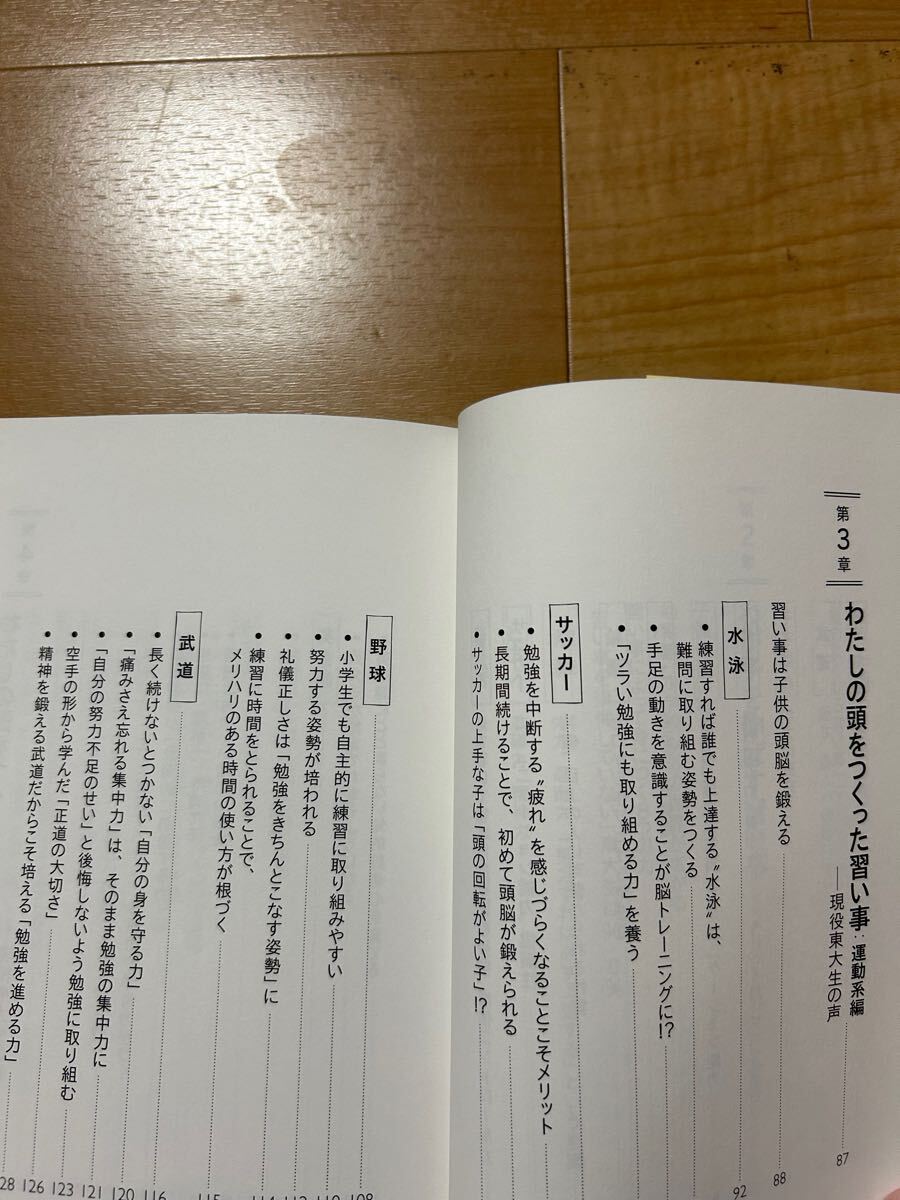 第3章
わたしの頭をつくった習い事：運動系編
――現役東大生の声
87
習い事は子供の頭脳を鍛える
88
水泳
92
●練習すれば誰でも上達する〝水泳〟は、
難問に取り組む姿勢をつくる
●手足の動きを意識することが脳トレーニングに!?
●「ツラい勉強にも取り組める力」を養う
サッカー
●勉強を中断する〝疲れ〟を感じづらくなることこそメリット
●長期間続けることで、初めて頭脳が鍛えられる
●サッカーの上手な子は「頭の回転がよい子」!?
野球
108
●小学生でも自主的に練習に取り組みやすい
110
●努力する姿勢が培われる
112
●礼儀正しさは「勉強をきちんとこなす姿勢」に
114
●練習に時間をとられることで、
メリハリのある時間の使い方が根づく
115
武道
116
●長く続けないとつかない「自分の身を守る力」
●「痛みさえ忘れる集中力」は、そのまま勉強の集中力に
120
●「自分の努力不足のせい」と後悔しないよう勉強に取り組む
121
●空手の形から学んだ「正道の大切さ」
123
●精神を鍛える武道だからこそ培える「勉強を進める力」
126